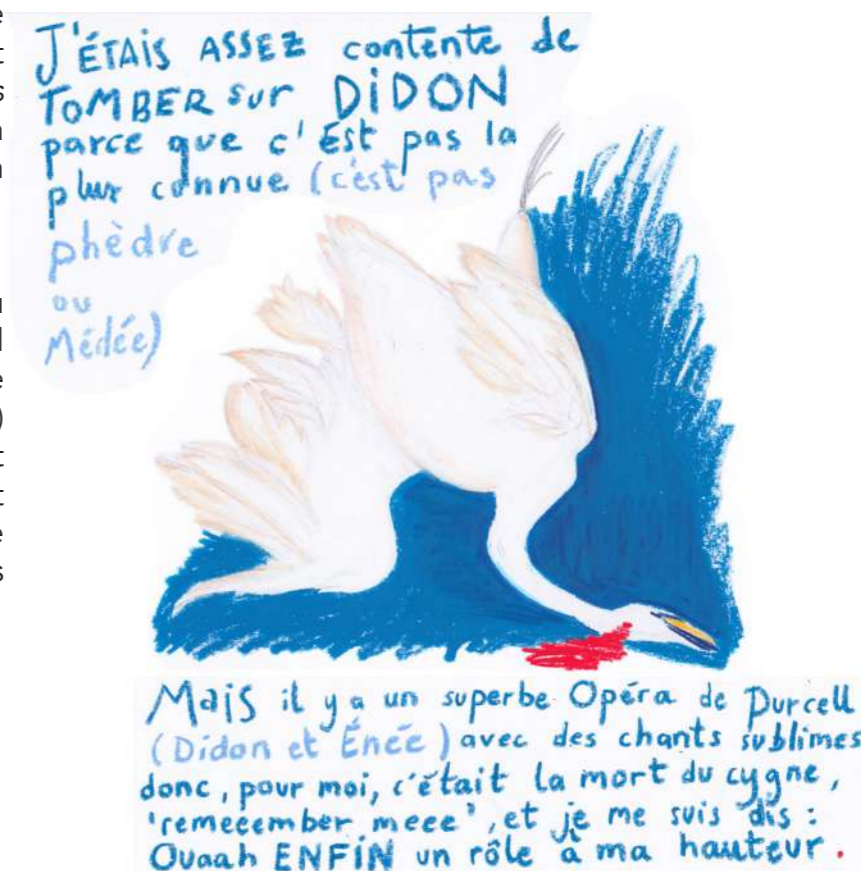 J'ÉTAIS ASSEZ contente de
TOMBER sur DiDON
parce que c'Est pas la
plus connue (c'est pas
phèdre
ou
Médée)
MaiS il y a un superbe Opéra de Purcell
(Didon et Énée) avec des chants sublimes
donc, pour moi, c'était la mort du cygne,
'remeeember meee', et je me suis dis :
Ouaah ENFiN un rôle à ma hauteur.